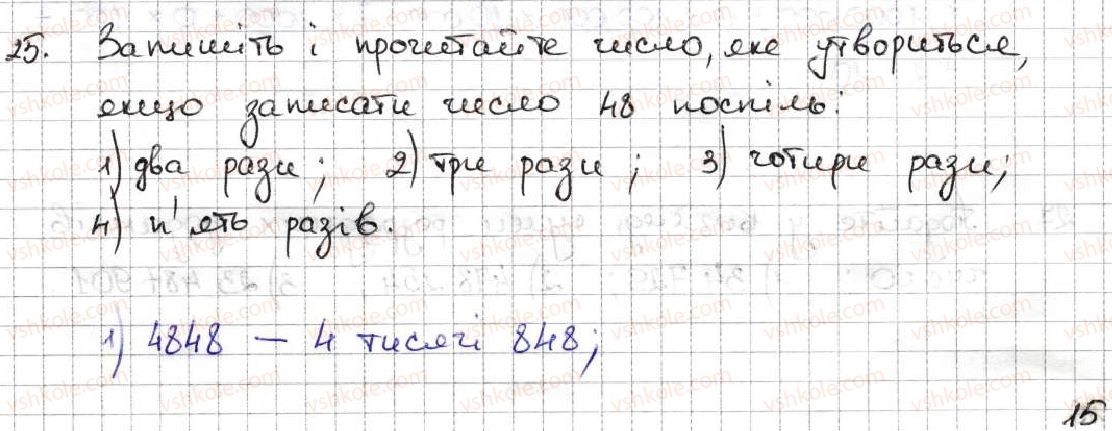 25. Запишіть і прочитайте число, яке утвориться,
якщо записати число 48 поспіль:
1) два рази; 2) три рази; 3) чотири рази;
4) п'ять разів.
1) 4848 — 4 тисячі 848;
15